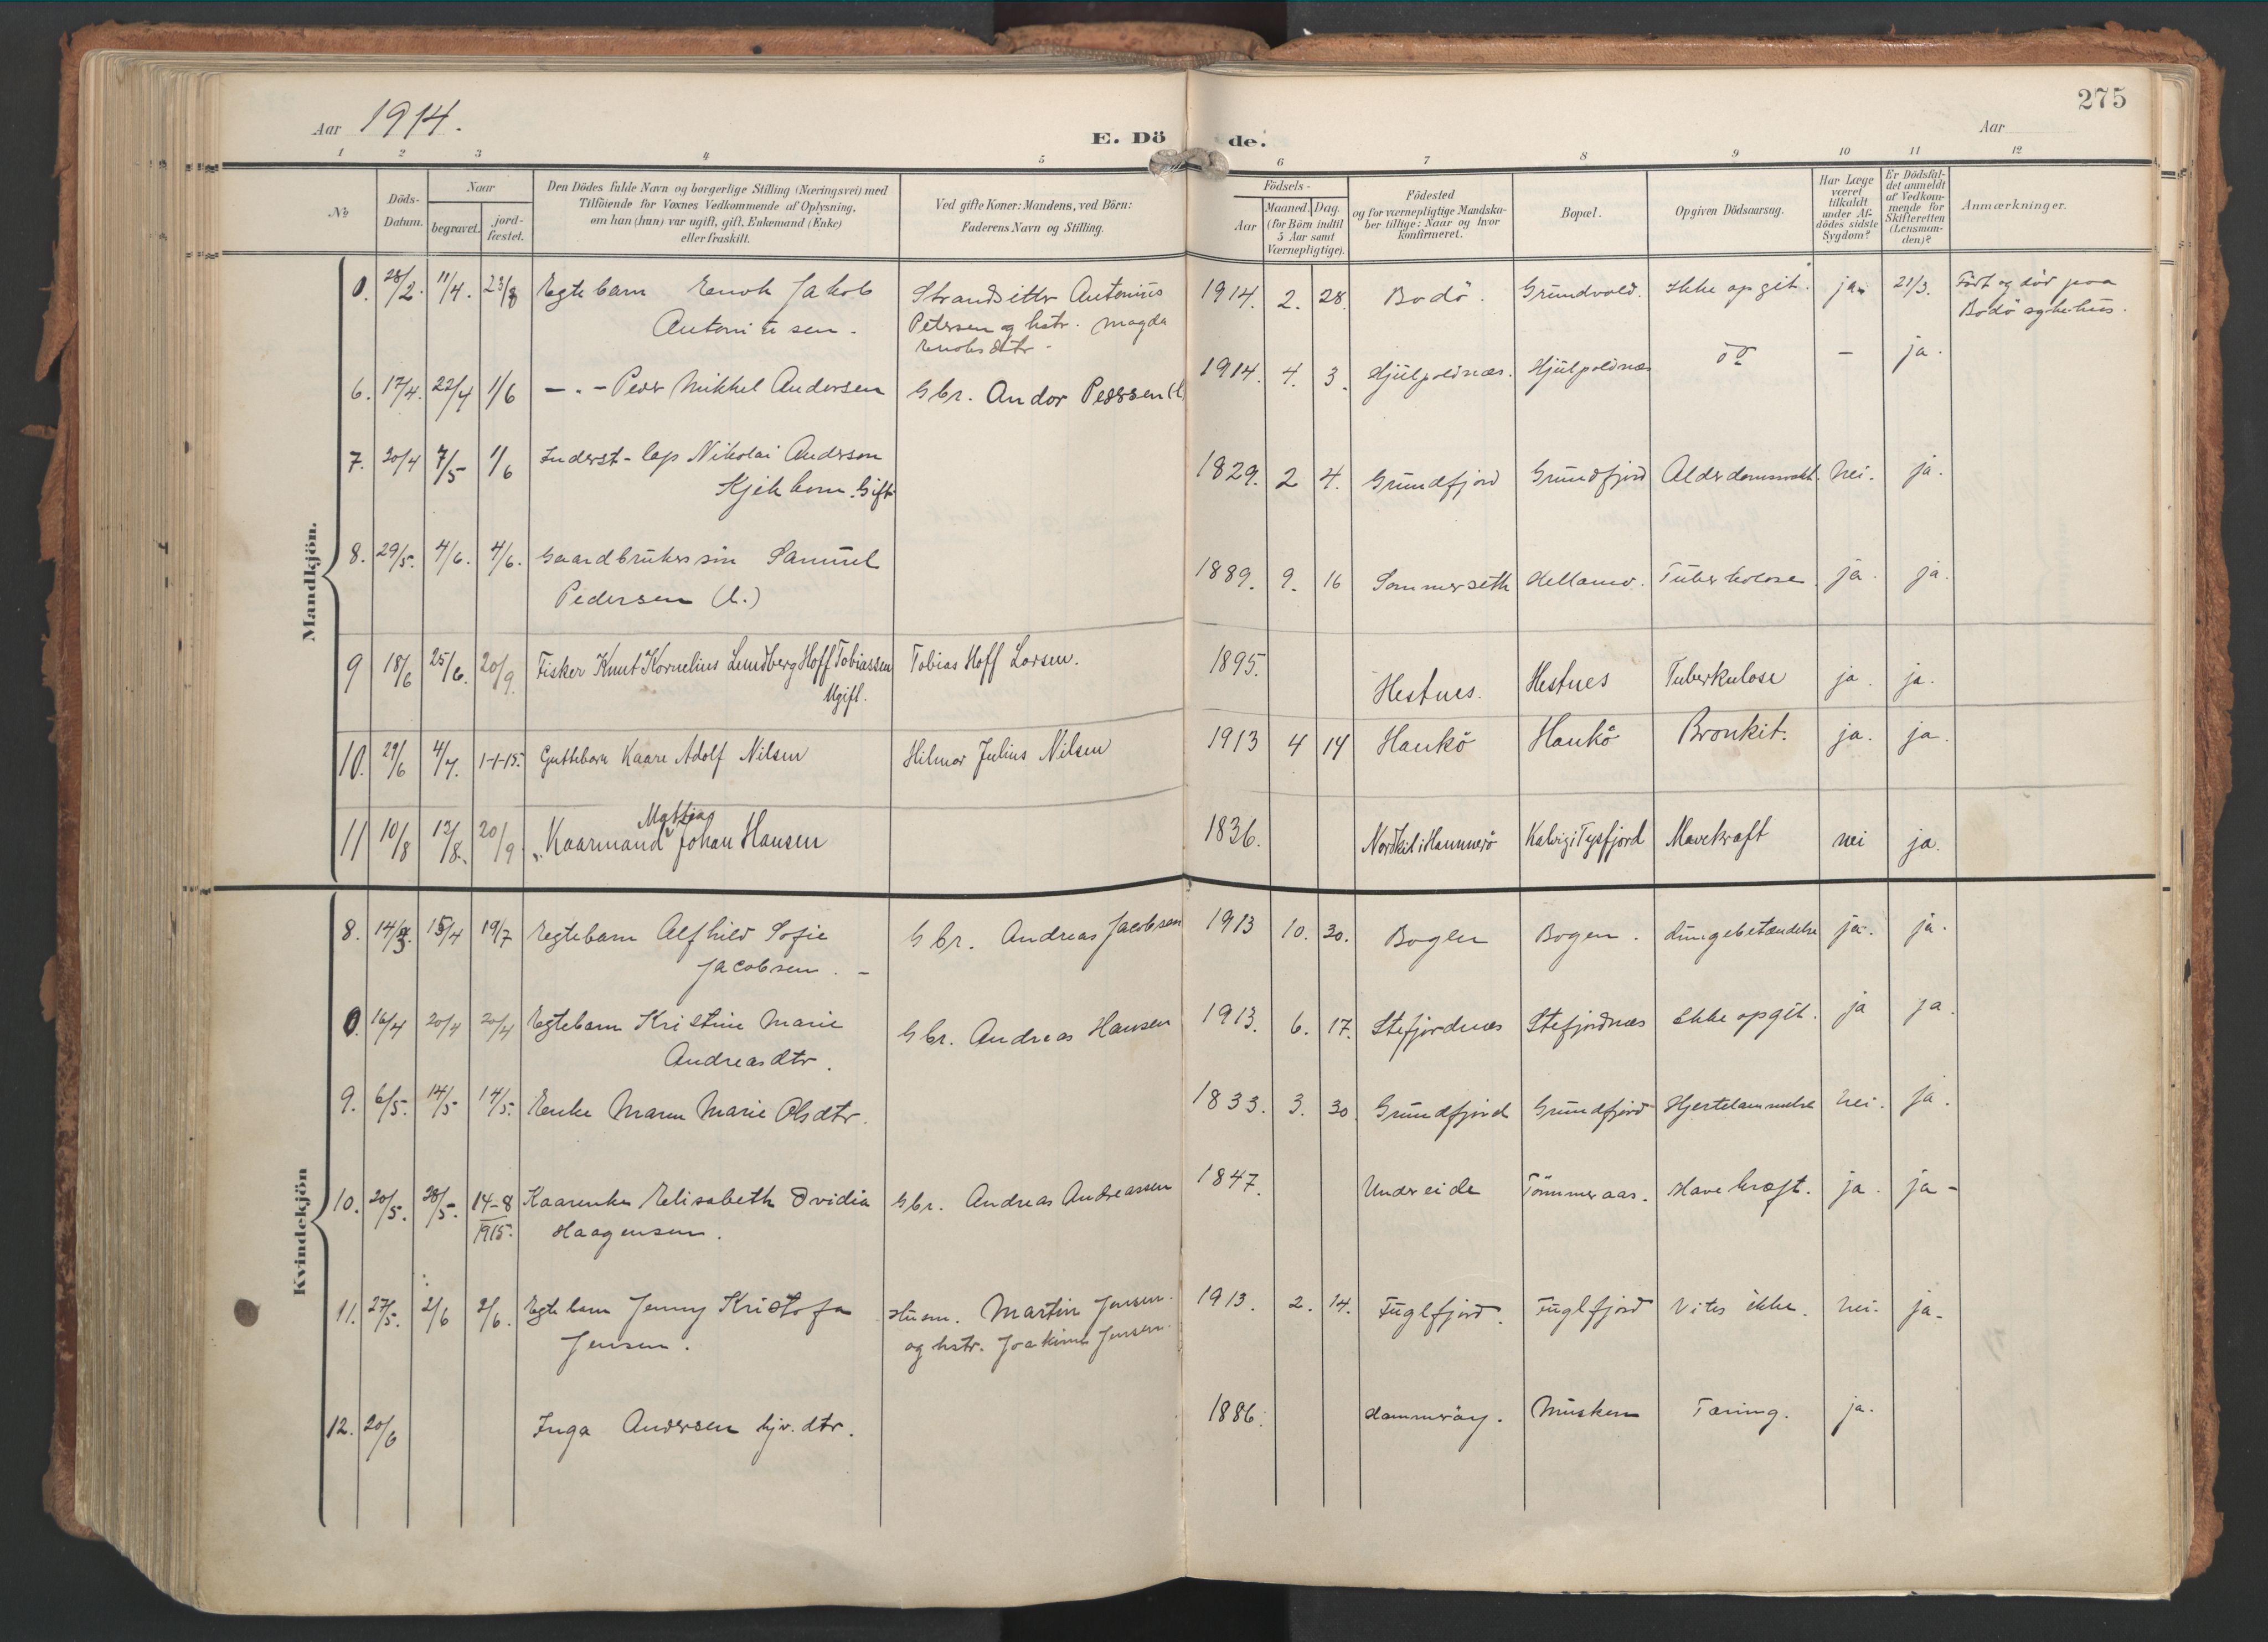 Aar 1914.
E. Döde.
275
Aar
1 2 3 4 5 6 7 8 9 10 11 12
№
Döds-
Datum.
Naar
begravet.
jord-
fæstet.
Den Dödes fulde Navn og borgerlige Stilling (Næringsvei) med
Tilföiende for Voxnes Vedkommende af Oplysning,
om han (hun) var ugift, gift, Enkemand (Enke)
eller fraskilt.
Ved gifte Koner: Mandens, ved Börn:
Faderens Navn og Stilling.
Födsels-
Aar
Maaned. Dag.
(for Börn indtil
5 Aar samt
Værnepligtige).
Födested
og for værnepligtige Mandska-
ber tillige: Naar og hvor
konfirmeret.
Bopæl.
Opgiven Dödsaarsag.
Har Læge
været
tilkaldt
under Af-
dödes sidste
Sygdom?
Er Dödsfal-
det anmeldt
af Vedkom-
mende for
Skifteretten
(Lensman-
den)?
Anmærkninger.
Mandkjön.
0. 28/2. 11/4. 23/8 Egtebarn Enok Jakob Strandsitter Antonius 1914. 2. 28. Bodö. Grundvold. Ikke opgit. ja. 21/3. Födt og död paa
Antoniusen. Petersen og hstr. Magda Bodö sykehus.
Enoksdtr.
6. 17/4. 22/4 1/6 — „ — Peder Mikkel Andersen Gbr. Andor Pedersen (l. 1914. 4. 3. Hjulpoldnæs. Hjulpoldnæs do — ja.
7. 20/4 7/5 1/6 Inderst-lap Nikolai Andersen 1829. 2 4. Grundfjord Grundfjord nei. ja.
Gift
8. 29/5. 4/6. 4/6. Gaardbrukersön Samuel 1889. 9. 16 Sommerseth Hellamo. Tuberkolose. ja. ja.
Pedersen (l.)
9 18/6 25/6. 20/9. Fisker Knut Kornelius Lundberg Hoff Tobiassen Tobias Hoff Larsen. 1895. Hestnes. Hestnes Tuberkulose ja. ja.
Ugift.
10. 29/6 4/7. 1-1-15. Guttebarn Kaare Adolf Nilsen Hilmar Julius Nilsen 1913 4 14 Haukö Haukö Bronkit. ja. ja.
Mattias
11 10/8 13/8. 20/9 „Kaarmand Johan Hansen 1836. Nordkil i Hammerö Kalvig i Tysfjord Mavekræft nei ja.
Kvindekjön
8. 14/3. 15/4 19/7 Egtebarn Alfhild Sofie Gbr. Andreas Jacobsen 1913 10. 30. Bogen Bogen. Lungebetændelse ja. ja.
Jacobsen. –
0. 16/4 20/4 20/4 Egtebarn Kristine Marie Gbr. Andreas Hansen 1913. 6. 17. Stefjordnes Stefjordnæs Ikke opgit. ja ja.
Andreasdtr.
9. 6/5. 14/5 14/5. Enke Maren Marie Olsdtr. 1833. 3. 30. Grundfjord Grundfjord Hjertelammelse nei. ja.
10. 20/5. 28/5. 14-8 Kaarenke Elisabeth Ovidia Gbr. Andreas Andreassen 1847. Undereide Tömmeraas. Mavekræft. ja. ja –
1915. Haagensen.
11. 27/5. 2/6 2/6. Egtebarn Jenny Kristofa Husm. Martin Jensen. 1913. 2. 14. Fuglfjord. Fuglfjord Vites ikke. nei. ja –
Jensen. og hstr. Joakime Jensen.
12. 20/6 Inga Andersen hjv. dtr. 1886. Hammeröy. Musken Tæring. ja.